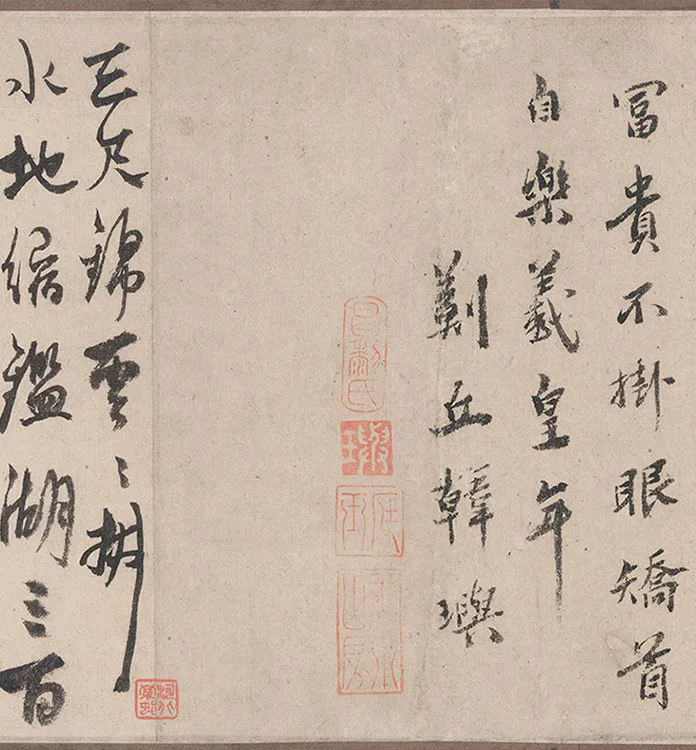 富貴不掛眼矯首
自樂羲皇年
薊丘韓璵
尺錦雲
水地縮鑑湖三百